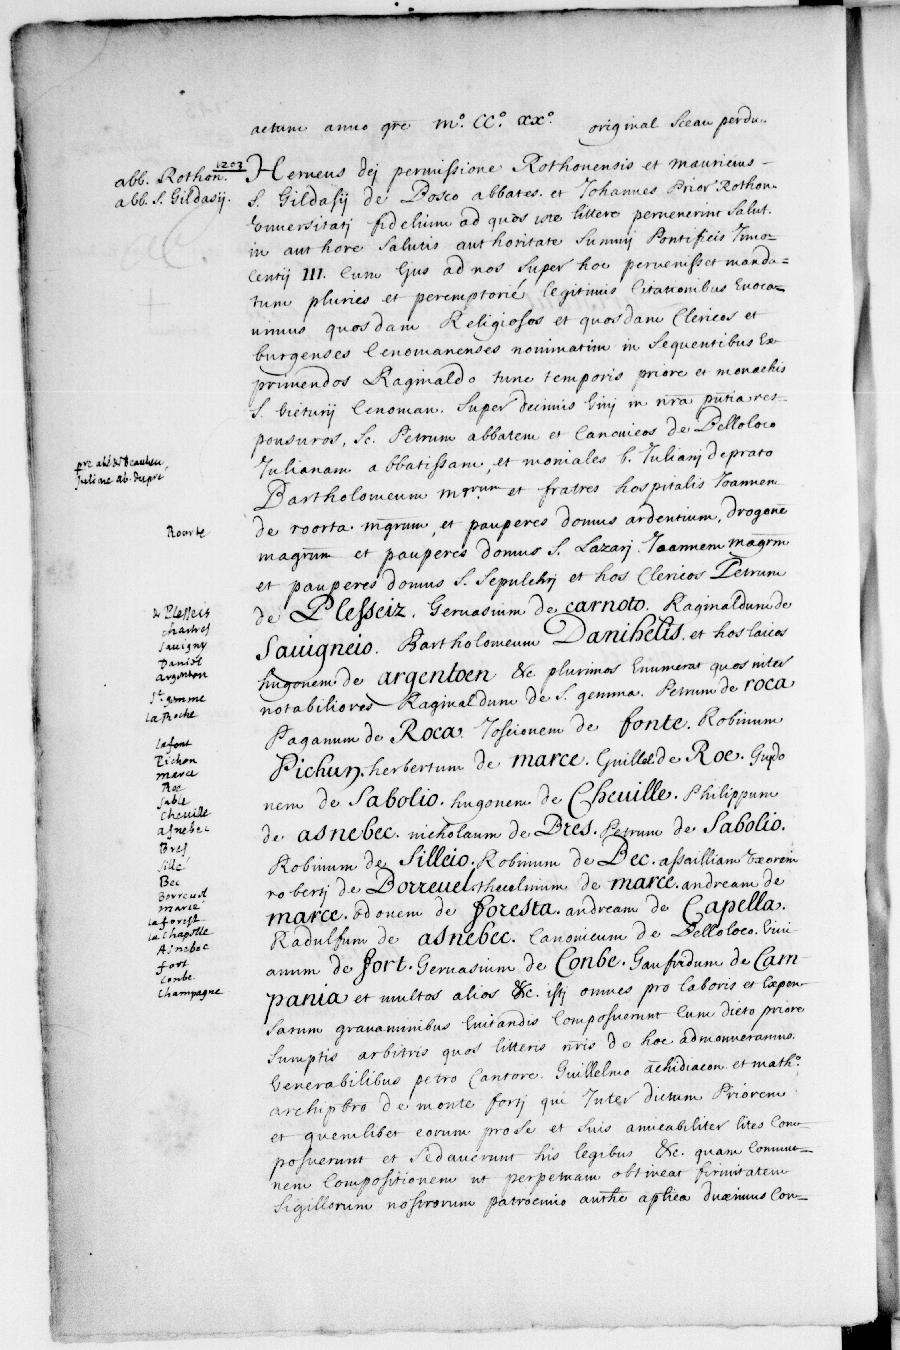 actum anno gre m.º CC.º xx.º original Sceau perdu.
1203
abb. Rothon.
abb. S. Gildasij.
Herueus dej permissione Rothonensis et mauricius
S. Gildasij de Bosco abbates. et Johannes Prior Rothon.
Vniuersitatj fidelium ad quos iste littere peruenerint Salut.
in authore Salutis authoritate Summj Pontificis Inno-
Centij III. Cum Ejus ad nos Super hoc peruenisset manda=
tum pluries et peremptorié legitimis Citationibus Euoca=
uimus quosdam Religiosos et quosdam Clericos et
burgenses Cenomanenses nominatim in Sequentibus Ex
primendos Raginaldo tunc temporis priore et monachis
S. Victurij Cenoman. Super decimis Vinj in nra pntia res-
ponsuros, Sc. Petrum abbatem et Canonicos de Belloloco
Julianam abbatissam, et moniales b. Julianj de prato
Bartholomeum mgrum et fratres hospitalis Joannem
de roorta mgrum, et pauperes domus ardentium, drogone
magrum et pauperes domus S. Lazarj. Joannem magrm
et pauperes domus S. Sepulchrj et hos Clericos Petrum
de Plesseiz. Geruasium de carnoto. Raginaldum de
Sauigneio. Bartholomeum Danihelis. et hos laicos
hugonem de argentoen &c plurimos Enumerat quos inter
notabiliores Raginaldum de S. gemma. Petrum de roca
Paganum de Roca Joscionem de fonte. Robinum
Pichun. herbertum de marce. Guillel. de Roe. Guido
nem de Sabolio. hugonem de Cheuille. Philippum
de asnebec. nicholaum de Bres. Petrum de Sabolio.
Robinum de Silleio. Robinum de Bec. assailliam Vxorem
robertj de Borreuel. thecelinum de marce. andream de
marce. odonem de foresta. andream de Capella.
Radulfum de asnebec. Canonicum de Belloloco. Viui-
anum de fort. Geruasium de Conbe. Gaufridum de Cam
pania et multos alios &c. istj omnes pro laboris et Expen
sarum grauaminibus Euitandis Composuerunt Cum dicto priore
Sumptis arbitris quos litteris nris de hoc admonueramus.
Venerabilibus petro Cantore. Guillelmo achidiacon. et math.º
archipbro de monte fortj qui Inter dictum Priorem
et quemlibet eorum pro se et suis amicabiliter lites Com
posuerunt et Sedauerunt his legibus &c. quam Commu=
nem Compositionem ut perpetuam obtineat firmitatem
Sigillorum nostrorum patrocinio authe aplica duximus Con=
pre abé de Beaulieu,
Juliane ab. du pré
Roorte
de Plesseis
chartres
Sauigny
Daniel
argenton
Ste. gemme
La Roche
la font
Pichon
marcé
Roe
Sablé
Cheuille
asnebec
Bres
Sillé
Bec
Borreuel
marcé
la forest
la Chapelle
Asnebec
fort
Conbe.
Champagne